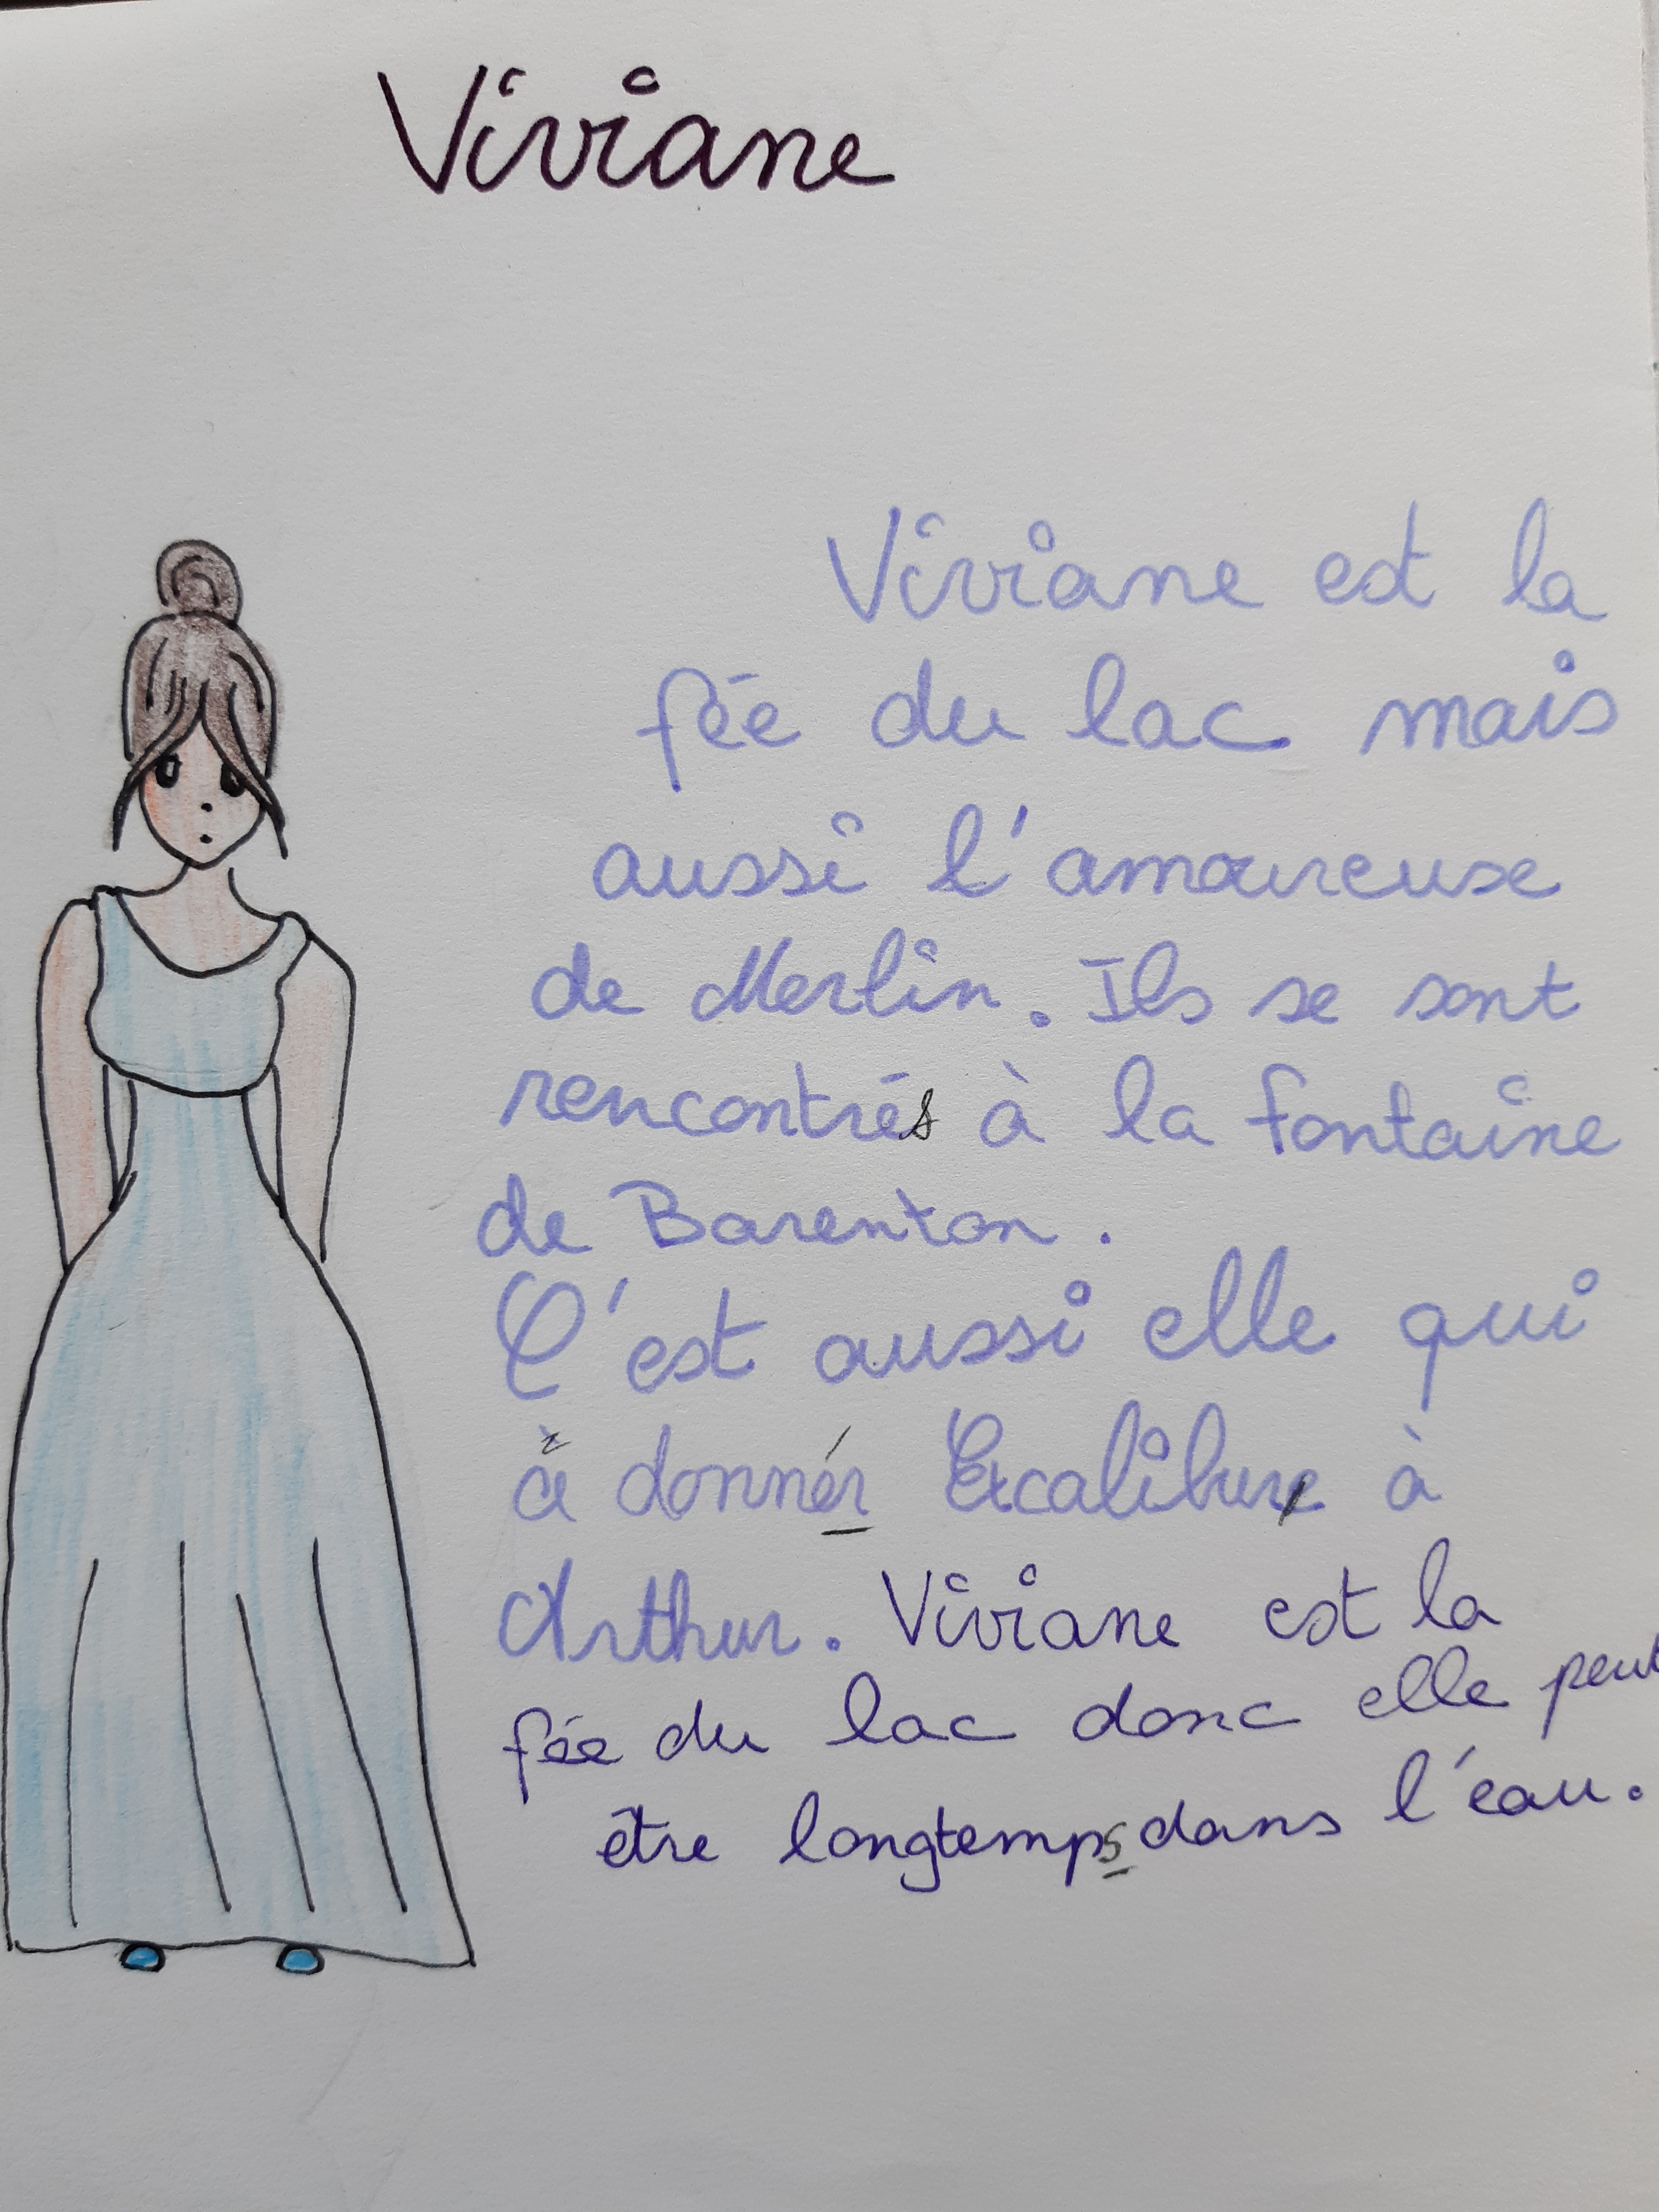 Viviane
Viviane est la
fée du lac mais
aussi l'amoureuse
de Merlin. Ils se sont
rencontrés à la fontaine
de Barenton.
C'est aussi elle qui
à donnér Excalibure à
Arthur. Viviane est la
fée du lac donc elle peut
être longtemps dans l'eau.